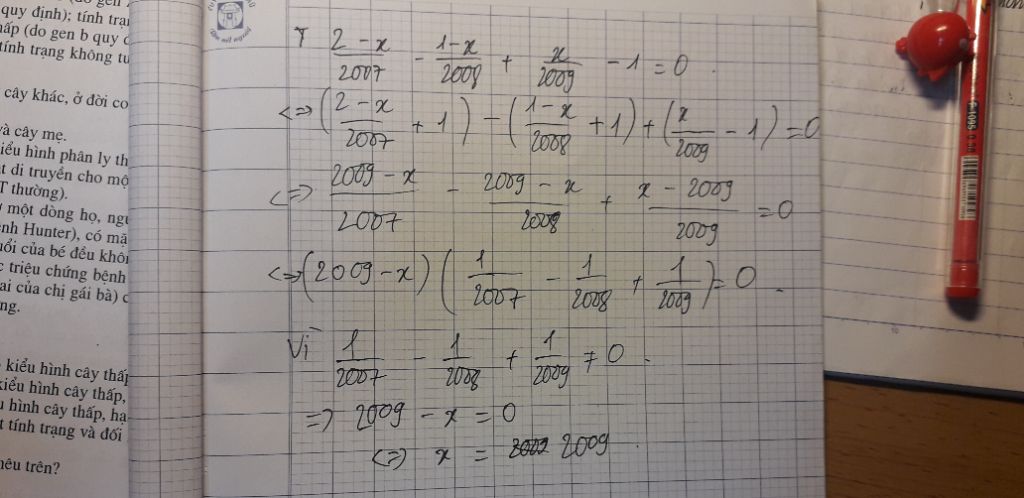 quy định); tính trạ
hấp (do gen b quy đ
tính trạng không tư
cây khác, ở đời co
và cây mẹ.
iểu hình phân ly th
t di truyền cho mộ
T thường).
một dòng họ, ngư
ệnh Hunter), có mă
uổi của bé đều khôi
c triệu chứng bệnh
ai của chị gái bà) c
ng.
kiểu hình cây thấp
kiểu hình cây thấp,
u hình cây thấp, hạ
t tính trạng và đối
nêu trên?
T (2-x)/2007 - (1-x)/2008 + x/2009 - 1 = 0.
<=> ((2-x)/2007 + 1) - ((1-x)/2008 + 1) + (x/2009 - 1) = 0
<=> (2009-x)/2007 - (2009-x)/2008 + (x-2009)/2009 = 0
<=> (2009-x) (1/2007 - 1/2008 + 1/2009) = 0.
Vì 1/2007 - 1/2008 + 1/2009 ≠ 0.
=> 2009 - x = 0
<=> x = 2009